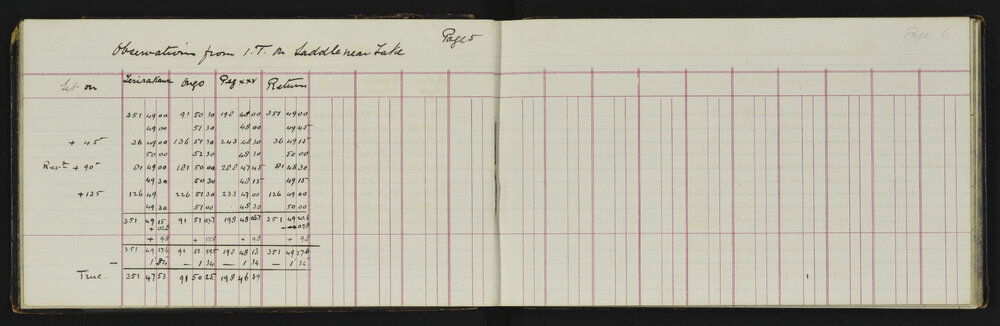 Page 5
Page 6
Observations from I.T. on Saddle near Lake
Set on Argo Peg xxv Return
351 49 00 91 50 30 198 48 00 351 49 00
49 00 51 30 48 00 49 45
+ 45 36 49 00 136 51 30 243 48 30 36 49 15
50 00 52 30 48 30 50 00
+ 90 81 49 00 181 50 00 288 47 45 81 48 30
49 30 50 30 48 15 49 15
+ 135 126 49 226 51 30 233 49 00 126 49 00
49 30 51 00 48 30 50 00
351 49 15 91 51 03.7 198 48 03.7 351 49
+ 02.8 02.8
+ 9.8 + + 9.8 + 9.8
351 49 27.6 91 51 59.5 198 48 13. 351 49 27.6
— 1 34 — 1 34 — 1 34 — 1 34
True 351 47 53 91 50 25 198 46 39